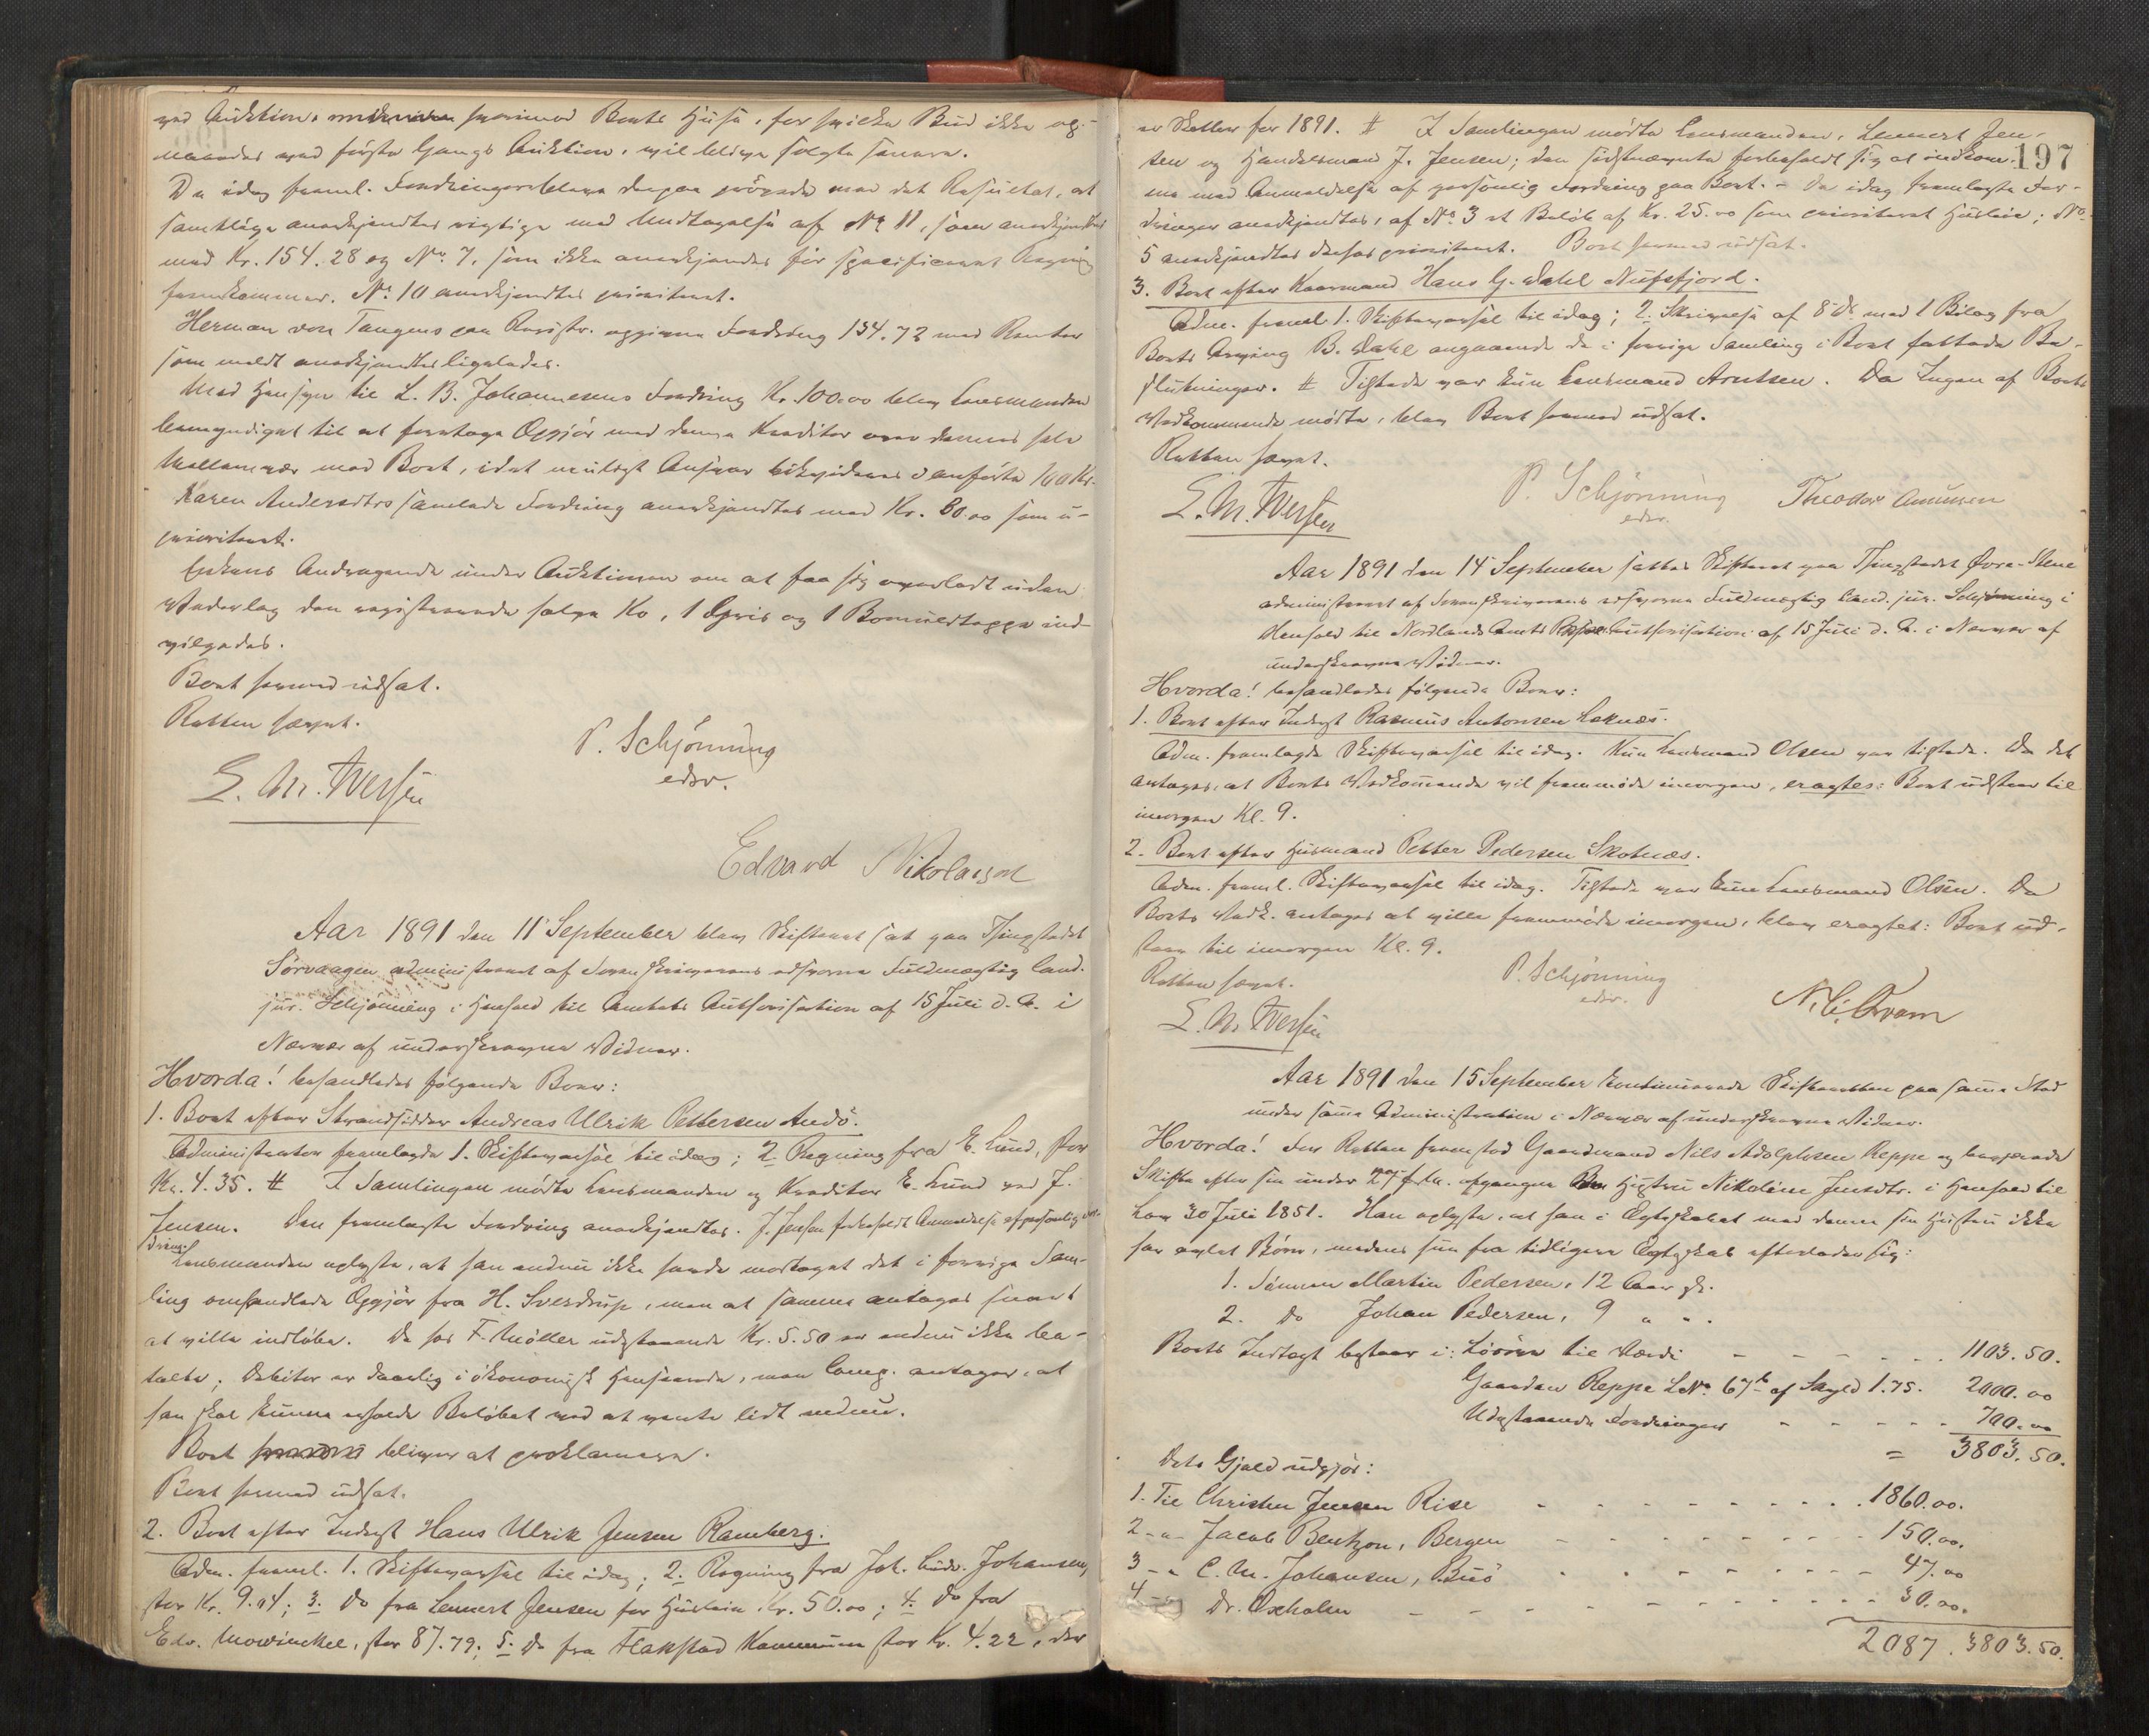 ved Auktion, hvorimod Boets Huse, for hvilke Bud ikke op-
naaedes ved første Gangs Auktion, vil blive solgte senere.
De idag freml. Fordringer blev derpaa prøvede med det Resultat, at
samtlige anerkjendtes rigtige med Undtagelse af No 11, som anerkjendtes
med Kr. 154.28 og No. 7, som ikke anerkjendes før specificeret Regning
fremkommer. No 10 anerkjendtes prioriteret.
Herman von Tangens paa Registr. opgivne Fordring 134.72 med Renter
som meldt anerkjendtes ligeledes.
Med Hensyn til L. B. Johannesens Fordring Kr. 100.00 blev Lensmanden
bemyndiget til at foretage Opgjør med denne Kreditor over dennes hele
Mellemvær med Boet, idet anførte 100 Kr.
Karen Andersdtrs samlede Fordring anerkjendtes med Kr. 80.00 som u-
prioriteret.
Enkens Andragende under Auktionen om at faa sig overladt uden
Vederlag den registrerede halve Ko, 1 Gris og 1 Bomuldteppe ind-
vilgedes.
Boet hermed udsat.
Retten hævet.
P. Schjønning
edsv.
L. M. Iversen
Edvard Nikolaisen
Aar 1891 den 11 September blev Skifteret sat paa Thingstedet
Sørvaagen administreret af Sorenskriverens edsvorne Fuldmægtig cand.
jur. Schjønning i Henhold til Amtets Authorisation af 15 Juli d. A. i
Nærvær af underskrevne Vidner.
Hvorda! behandledes følgende Boer:
1. Boet efter Strandsidder Andreas Ulrik Pettersen Andø.
Administrator fremlagde 1. Skiftevarsel til idag; 2. Regning fra E. Lund, stor
Kr. 4.35. # I Samlingen mødte Lensmanden og Kreditor E. Lund ved J.
Jensen. Den fremlagte Fordring anerkjendtes. J. Jensen forbeholdt Anmeldelse af personlig For-
dring.
Lensmanden oplyste, at han endnu ikke havde modtaget det i forrige Sam-
ling omhandlede Opgjør fra H. Sverdrup, men at samme antages snart
at ville indløbe. De hos F. Møller udestaaende Kr. 5.50 er endnu ikke be-
talte; Debitor er daarlig i økonomisk Henseende, men Comp. antager, at
han skal kunne erholde Beløbet ved at vente lidt endnu.
Boet bliver at proklamere.
Boet hermed udsat.
2. Boet efter Inderst Hans Ulrik Jensen Ramberg.
Adm. freml. 1. Skiftevarsel til idag; 2. Regning fra Joh. Ludv. Johansen,
stor Kr. 9.04; 3. Do fra Lennert Jensen for Husleie Kr. 50.00; 4. Do fra
Edv. Mowinckel, stor 87.79; 5. Do fra Flakstad Kommune stor Kr. 4.22, der
197
er Skatter for 1891. # I Samlingen mødte Lensmanden, Lennert Jen-
sen og Handelsmand J. Jensen; den sidstnævnte forbeholdt sig at indkom-
me med Anmeldelse af personlig Fordring paa Boet. - De idag fremlagte For-
dringer anerkjendtes, af No 3 et Beløb af Kr. 25.00 som prioriteret Husleie; No.
5 anerkjendtes ogsaa prioriteret. Boet hermed udsat.
3. Boet efter Kaarmand Hans G. Dahl Nufsfjord.
Adm. freml. 1. Skiftevarsel til idag; 2. Skrivelse af 8 ds. med 1 Bilag fra
Boets Arving B. Dahl angaaende de i forrige Samling i Boet fattede Be-
slutninger. # Tilstede var kun Lensmand Arntsen. Da Ingen af Boets
Vedkommende mødte, blev Boet hermed udsat.
Retten hævet.
P. Schjønning
edsv.
Theodor Amundsen
L. M. Iversen
Aar 1891 den 14 September sattes Skifteret paa Thingstedet Øvre-Stene
administreret af Sorenskriverens edsvorne Fuldmægtig cand. jur. Schjønning i
Henhold til Nordlands Amts Authorisation af 15 Juli d. A. i Nærvær af
underskrevne Vidner.
Hvorda! behandledes følgende Boer:
1. Boet efter Inderst Rasmus Antonsen Leknæs.
Adm. fremlagde Skiftevarsel til idag. Kun Lensmand Olsen var tilstede. Da det
antages, at Boets Vedkommende vil fremmøde imorgen, eragtes: Boet udstaar til
imorgen Kl. 9.
2. Boet efter Husmand Petter Pedersen Skotnæs.
Adm. freml. Skiftevarsel til idag. Tilstede var kun Lensmand Olsen. Da
Boets Vedk. antages at ville fremmøde imorgen, blev eragtet: Boet ud-
staar til imorgen Kl. 9.
Retten hævet.
P. Schjønning
edsv.
L. M. Iversen
Aar 1891 den 15 September kontinuerede Skifteretten paa samme Sted
under samme Administration i Nærvær af underskrevne Vidner.
Hvorda! For Retten fremstod Gaardmand Nils Adolphsen Reppe og begjærede
Skifte efter sin under 27 f. M. afgangne Hustru Nikoline Jensdtr. i Henhold til
Lov 30 Juli 1851. Han oplyste, at han i Ægteskabet med denne sin Hustru ikke
har avlet Børn, medens hun fra tidligere Ægteskab efterlader sig:
1. Sønnen Martin Pedersen, 12 Aar gl.
2. Do Johan Pedersen, 9 " ".
Boets Indtægt bestaar i: Løsøre til Værdi - - - - 1103.50.
Gaarden Reppe LNo 67b af Skyld 1.75. 2000.00
Udestaaende Fordringer - - - - 700.00
= 3803.50.
Dets Gjeld udgjør:
1. Til Christen Jensen Rise - - - - 1860.00.
2 - " - Jacob Bentzon, Bergen - - - - 150.00.
3 - " C. M. Johansen, Buø - - - - 47.00
4 - " Dr. Oxholm - - - - 30.00.
2087. 3803.50.